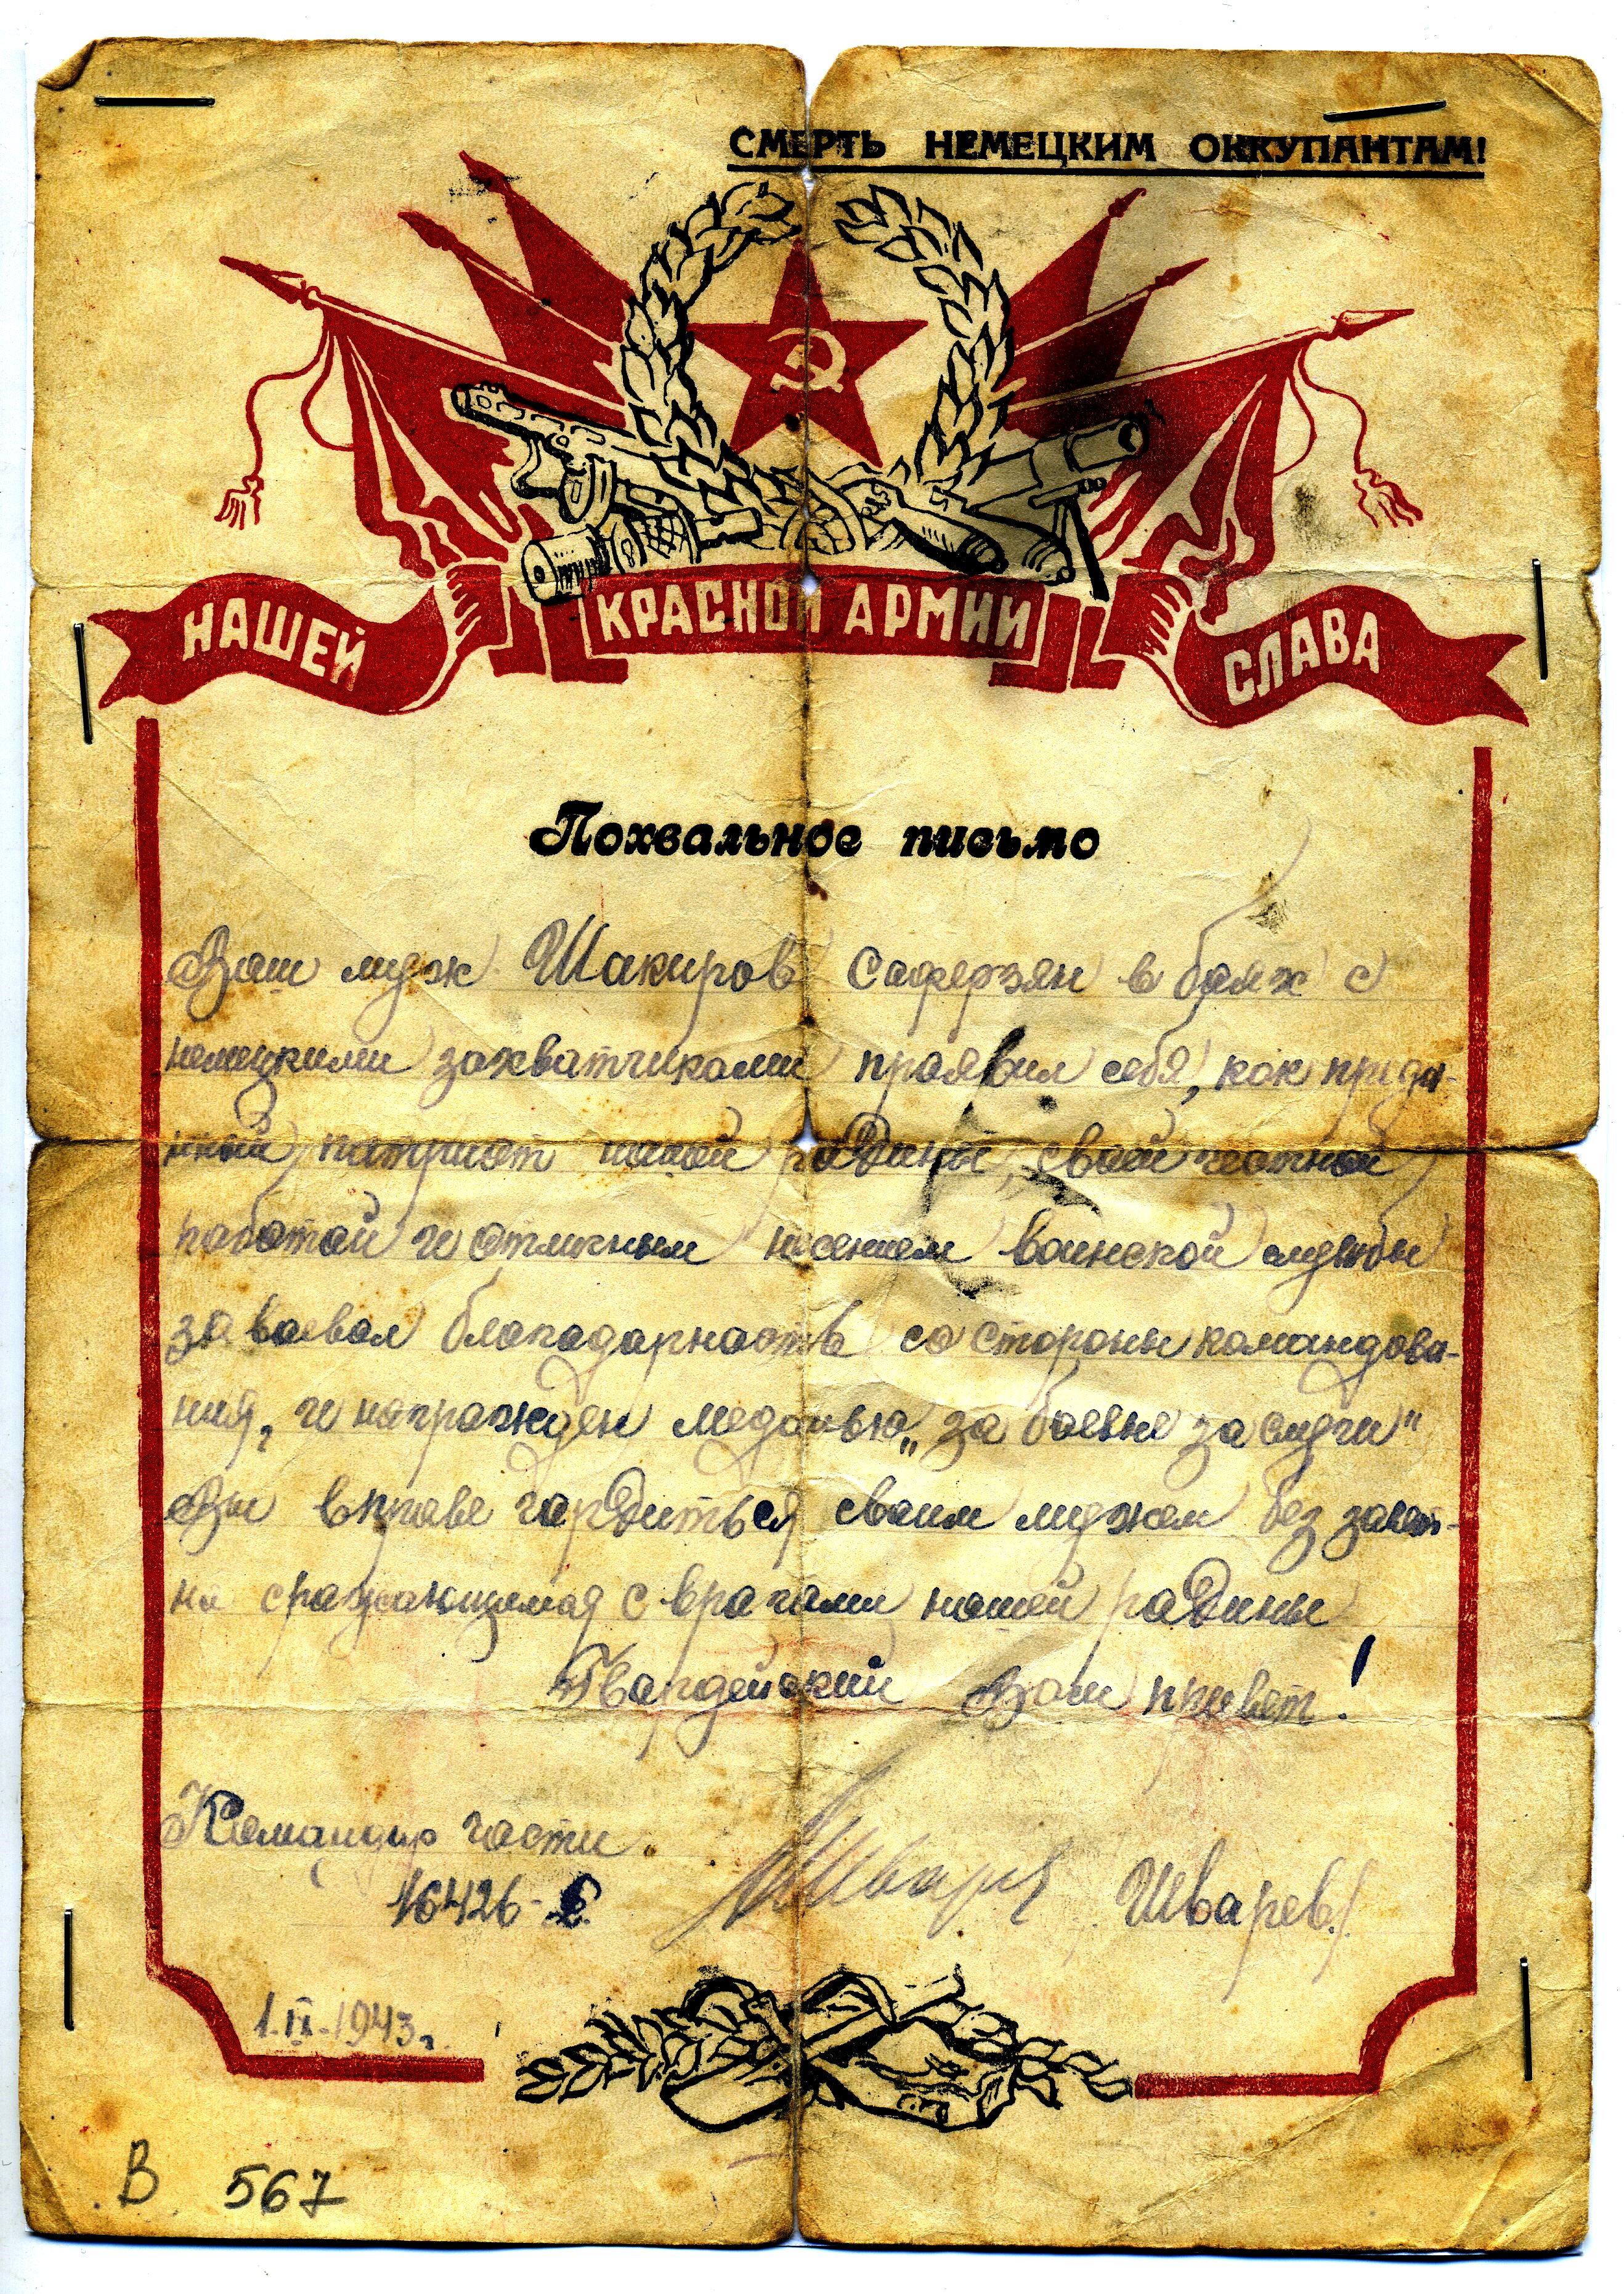 СМЕРТЬ НЕМЕЦКИМ ОККУПАНТАМ!
НАШЕЙ КРАСНОЙ АРМИИ СЛАВА
Похвальное письмо
Ваш муж Шакиров Саферзян в боях с
немецкими захватчиками проявил себя, как преда-
нный патриот нашей родины, своей честной
работой и отличным несением воинской службы
завоевал благодарность со стороны командова-
ния, и награжден медалью „за боевые заслуги"
Вы вправе гордиться своим мужем беззавет-
но сражающимся с врагами нашей родины
Гвардейский Вам привет!
Командир части
16426-
Шварев
1.IX.1943г.
В 567